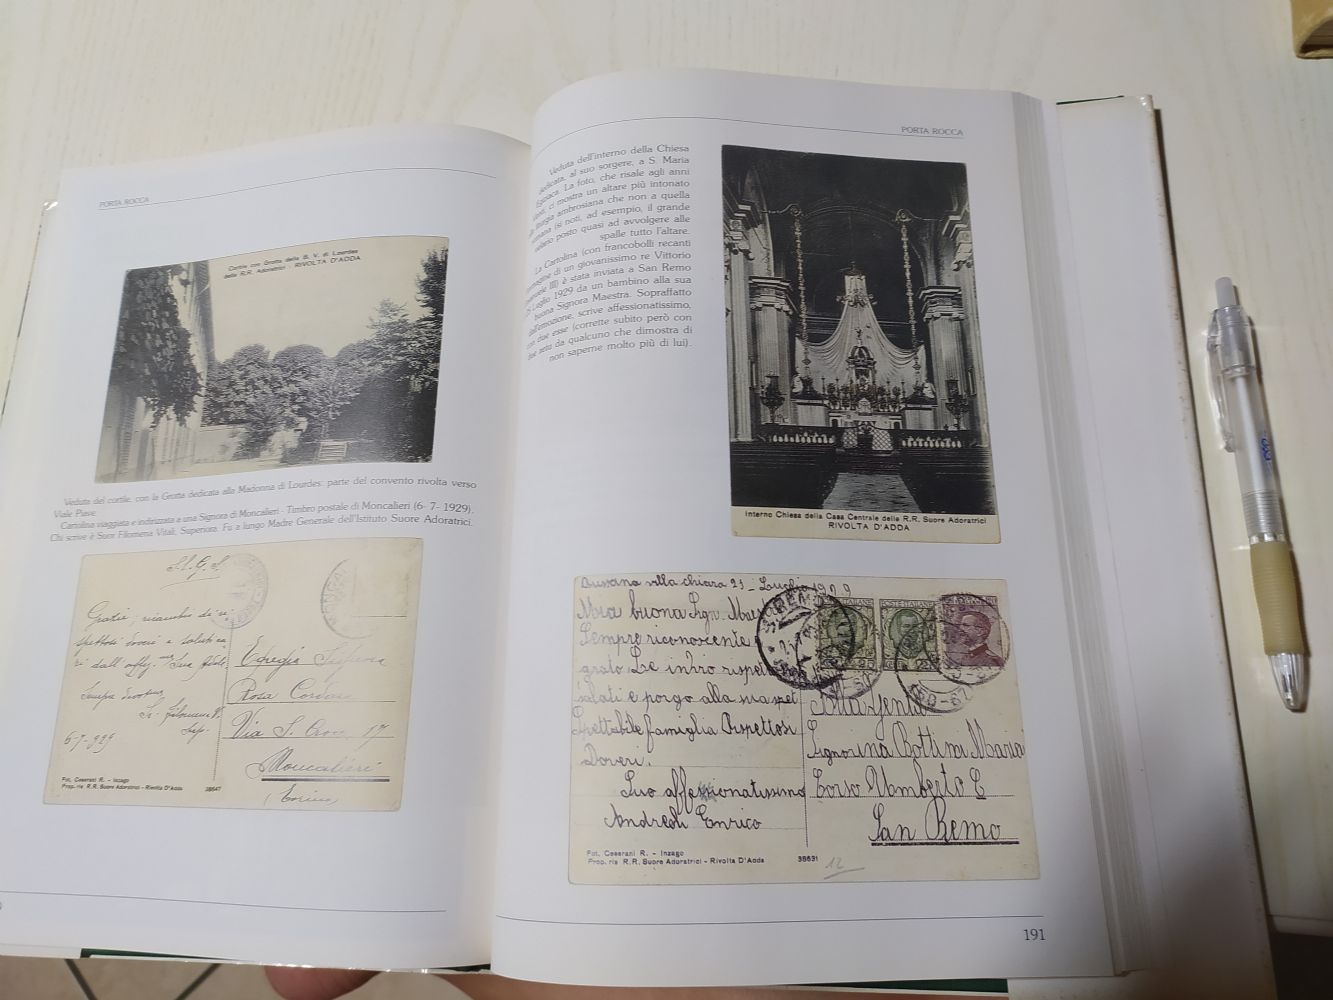 PORTA ROCCA
Cortile con Grotta della B. V. di Lourdes
delle R.R. Adoratrici - RIVOLTA D'ADDA
Veduta del cortile, con la Grotta dedicata alla Madonna di Lourdes: parte del convento rivolta verso
Viale Piave.
Cartolina viaggiata e indirizzata a una Signora di Moncalieri - Timbro postale di Moncalieri (6- 7- 1929).
Chi scrive è Suor Filomena Vitali, Superiora. Fu a lungo Madre Generale dell'Istituto Suore Adoratrici.
S.L.G.S.
Grazie, ricambio di
doveri e saluto
Egregia Signora
Rosa
Via S. Croce, 17
Moncalieri
(Torino)
6-7-929
Fot. Ceserani R. - Inzago
Prop. ris R.R. Suore Adoratrici - Rivolta D'Adda 38647
PORTA ROCCA
Veduta dell'interno della Chiesa
dedicata, al suo sorgere, a S. Maria
Egiziaca. La foto, che risale agli anni
ci mostra un altare più intonato
liturgia ambrosiana che non a quella
(si noti, ad esempio, il grande
velario posto quasi ad avvolgere alle
spalle tutto l'altare.
La Cartolina (con francobolli recanti
l'immagine di un giovanissimo re Vittorio
Emanuele III) è stata inviata a San Remo
Luglio 1929 da un bambino alla sua
buona Signora Maestra. Sopraffatto
dall'emozione, scrive affessionatissimo,
con due esse (corrette subito però con
due zeta da qualcuno che dimostra di
non saperne molto più di lui).
Interno Chiesa della Casa Centrale delle R.R. Suore Adoratrici
RIVOLTA D'ADDA
villa chiara 23 - Luglio 1929
Mia buona Sign.
Sempre riconoscente
grato Le invio
saluti e porgo alla sua
Spettabile famiglia Rispettosi
Doveri.
Suo
Andreoli Enrico
POSTE ITALIANE
Gentil
Signorina Bottini Maria
Corso Umberto
San Remo
Fot. Ceserani R. - Inzago
Prop. ris R.R. Suore Adoratrici - Rivolta D'Adda 38631
12
191